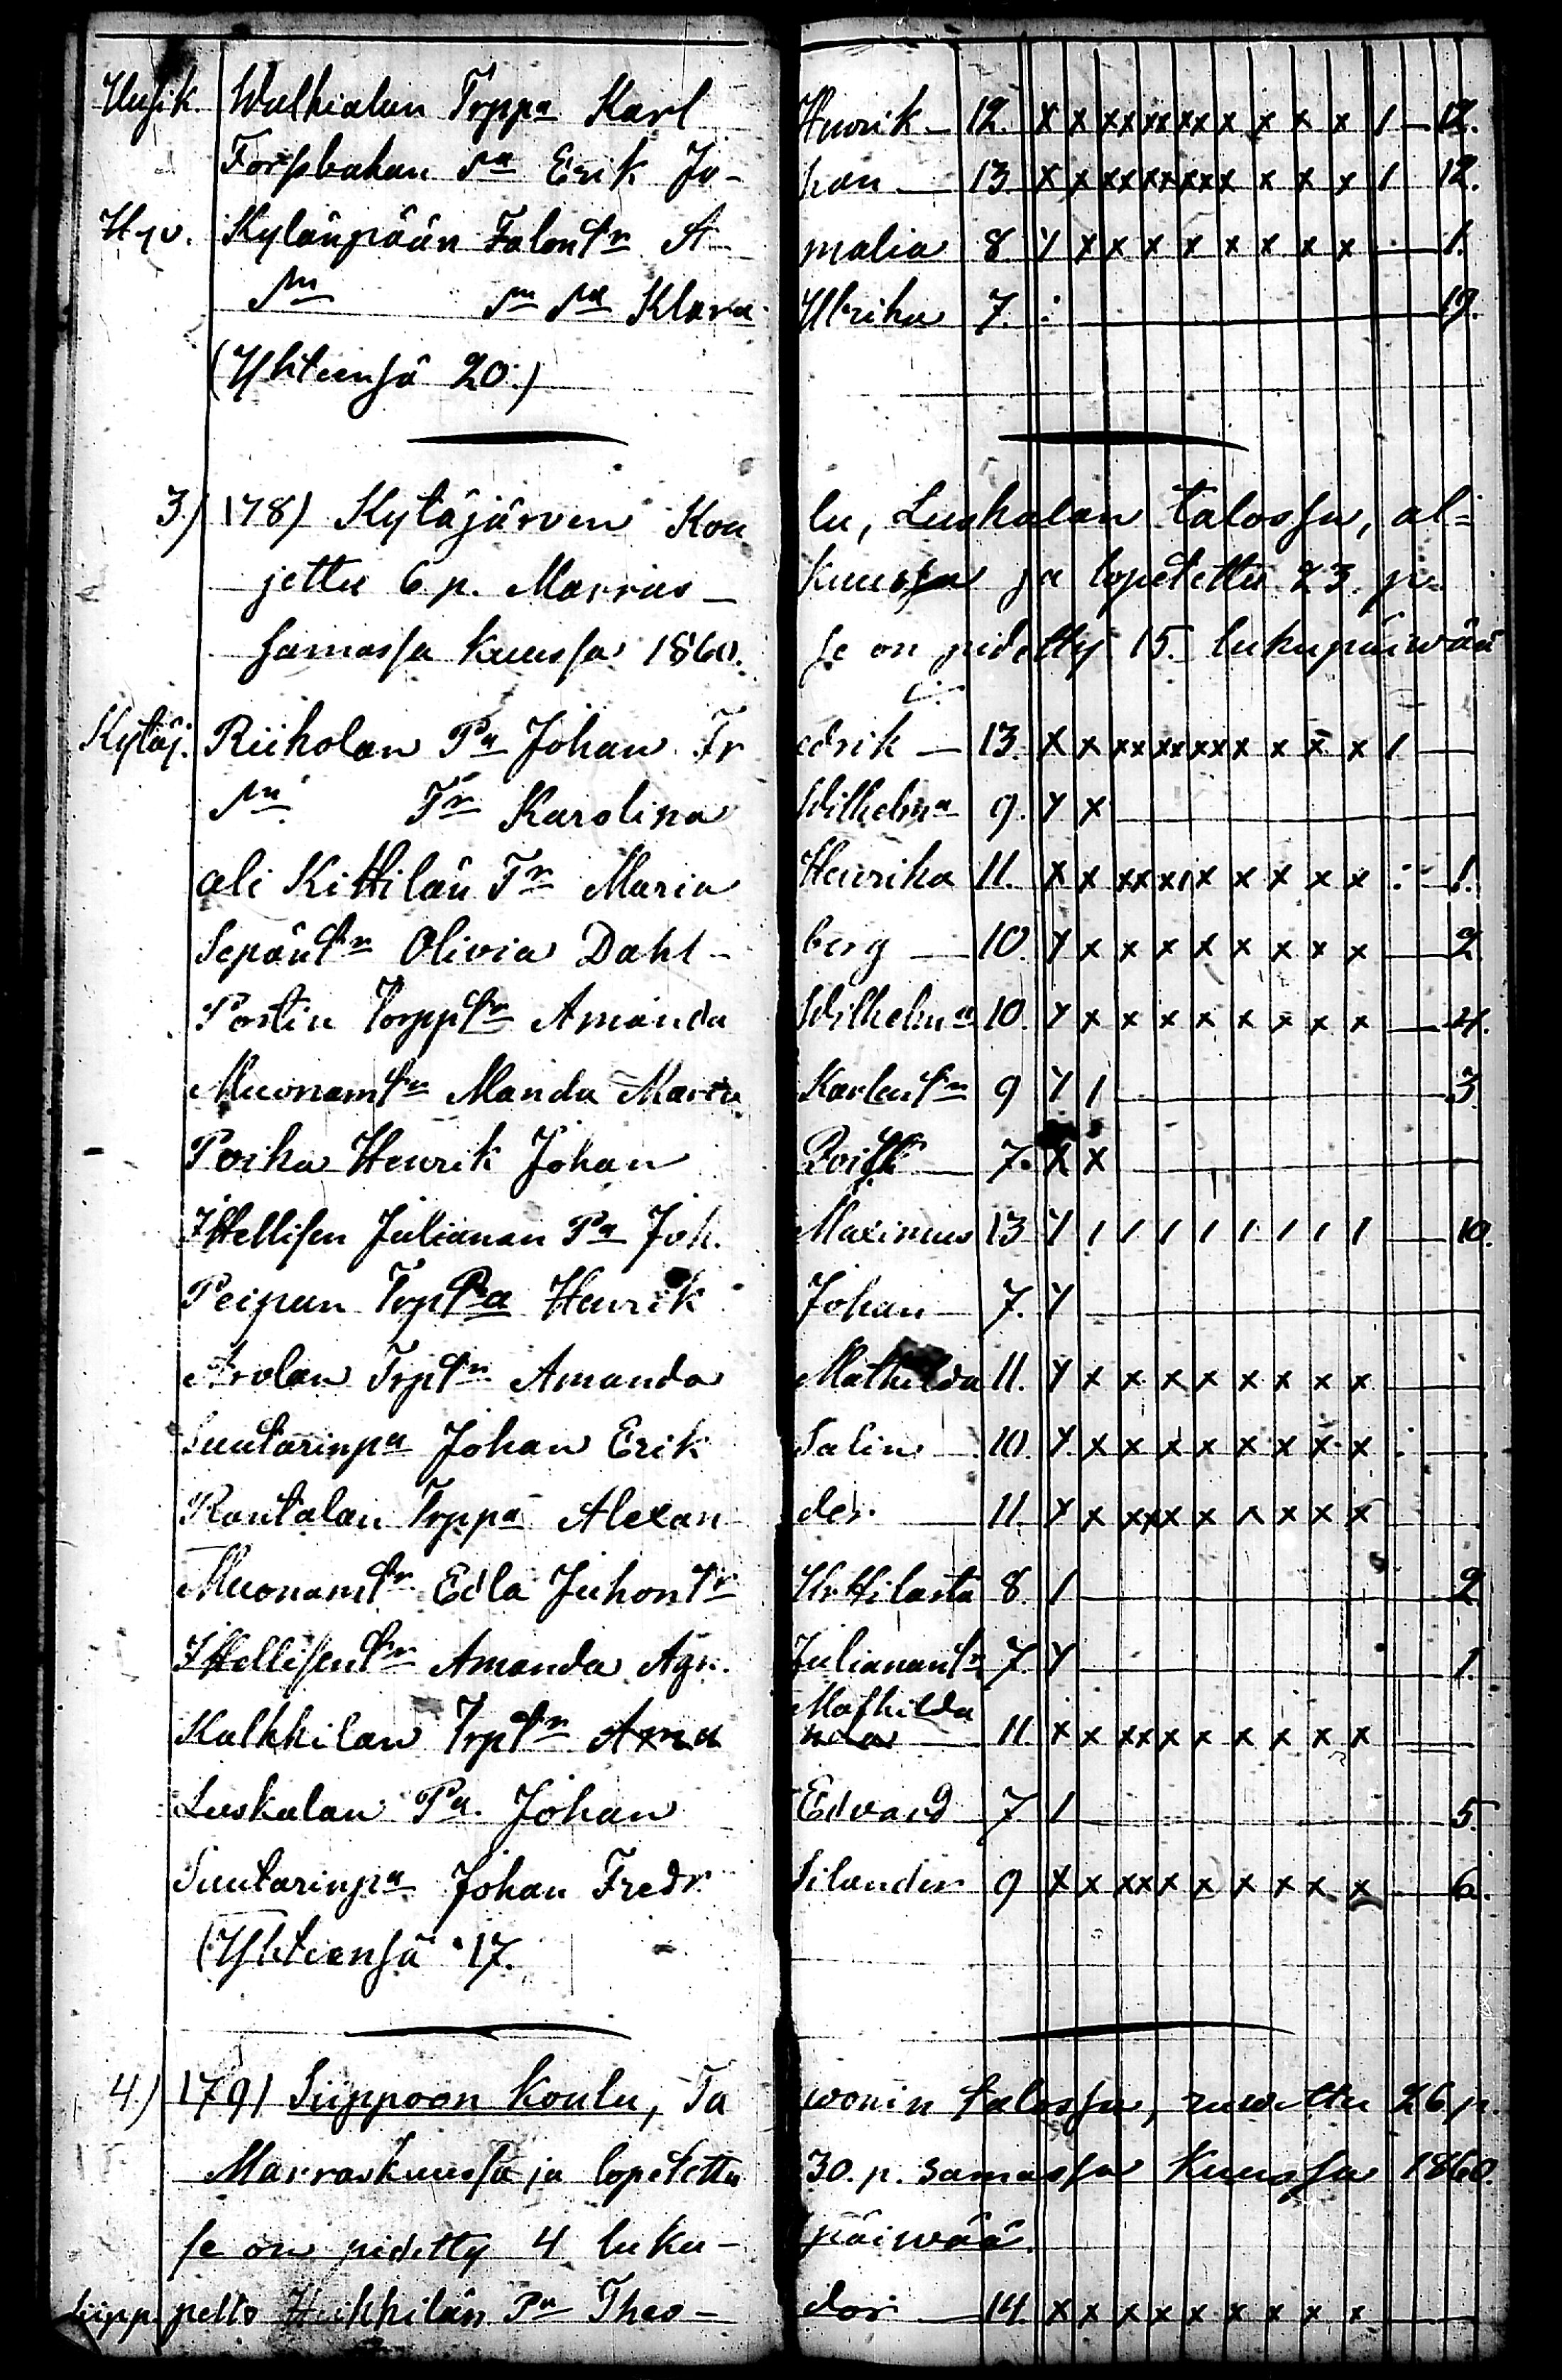 Uusik. Walkialan Trppa Karl Henrik - 12. x x xx xx xx x x x x 1 - 12.
Forssbakan Pa Erik Jo- han - 13 x x xx xx xx x x x x 1 12.
Hyv. Kylänpään Talontr A- malia 8 y x x x x x x x x - 1.
Sn Sn Sa Klara Ulrika 7. - 19.
(Yhteensä 20.)
3.) 178) Kytäjärven Kou lu, Luskalan talossa, al=
jettu 6 p. Marras- kuussa ja lopetettu 23. p.
samassa kuussa 1860. se on pidetty 15. lukupäiwää
Kytäj. Riiholan Pa Johan Fr edrik - 13. x x xx xx xx x x x x 1 -
Sn Tr Karolina Wilhelma 9. y x -
ali Kittilän Tr Maria Henrika 11. x x xx x1 x x x x x - 1.
Sepäntr Olivia Dahl- berg - 10. y x x x x x x x x - 2
Postin Torpptr Amanda Wilhelma 10. y x x x x x x x x - 4.
Muonamtr Manda Maria Karlentr 9 y 1 - 3.
Poika Henrik Johan 7. x x -
Ittellisen Julianan Pa Joh. Maximus 13 y 1 1 1 1 1 1 1 1 - 10.
Peipun TrpPa Henrik Johan - 7. y -
Arolan Trptr Amanda Mathilda 11. y x x x x x x x x -
Suutarinpa Johan Erik Salin - 10. y x x x x x x x x -
Rantalan Trppa Alexan der - 11. y x xxx x x x x x
Muonamtr Edla Juhontr Kittilästä 8. 1 - 2
Ittellisentr Amanda Agr. Julianantr 7. y - 1.
Mathilda
Kalkkilan Trptr Ama nda - 11. x x xx x x x x x x -
Luskalan Pa. Johan Edvard 7 1 - 5.
Suutarinpa Johan Fredr. Silander 9 x x xx x x x x x x - 6.
(Yhteensä 17.
4.) 179) Siippoon Koulu, Ta wonin talossa, ruwettu 26 p.
Marraskuussa ja lopetettu 30. p. samassa Kuussa 1860.
se on pidetty 4 luku- päiwää.
Siipp. pelto Heikkilän Pa Theo- dor - 14. x x x x x x x x x -